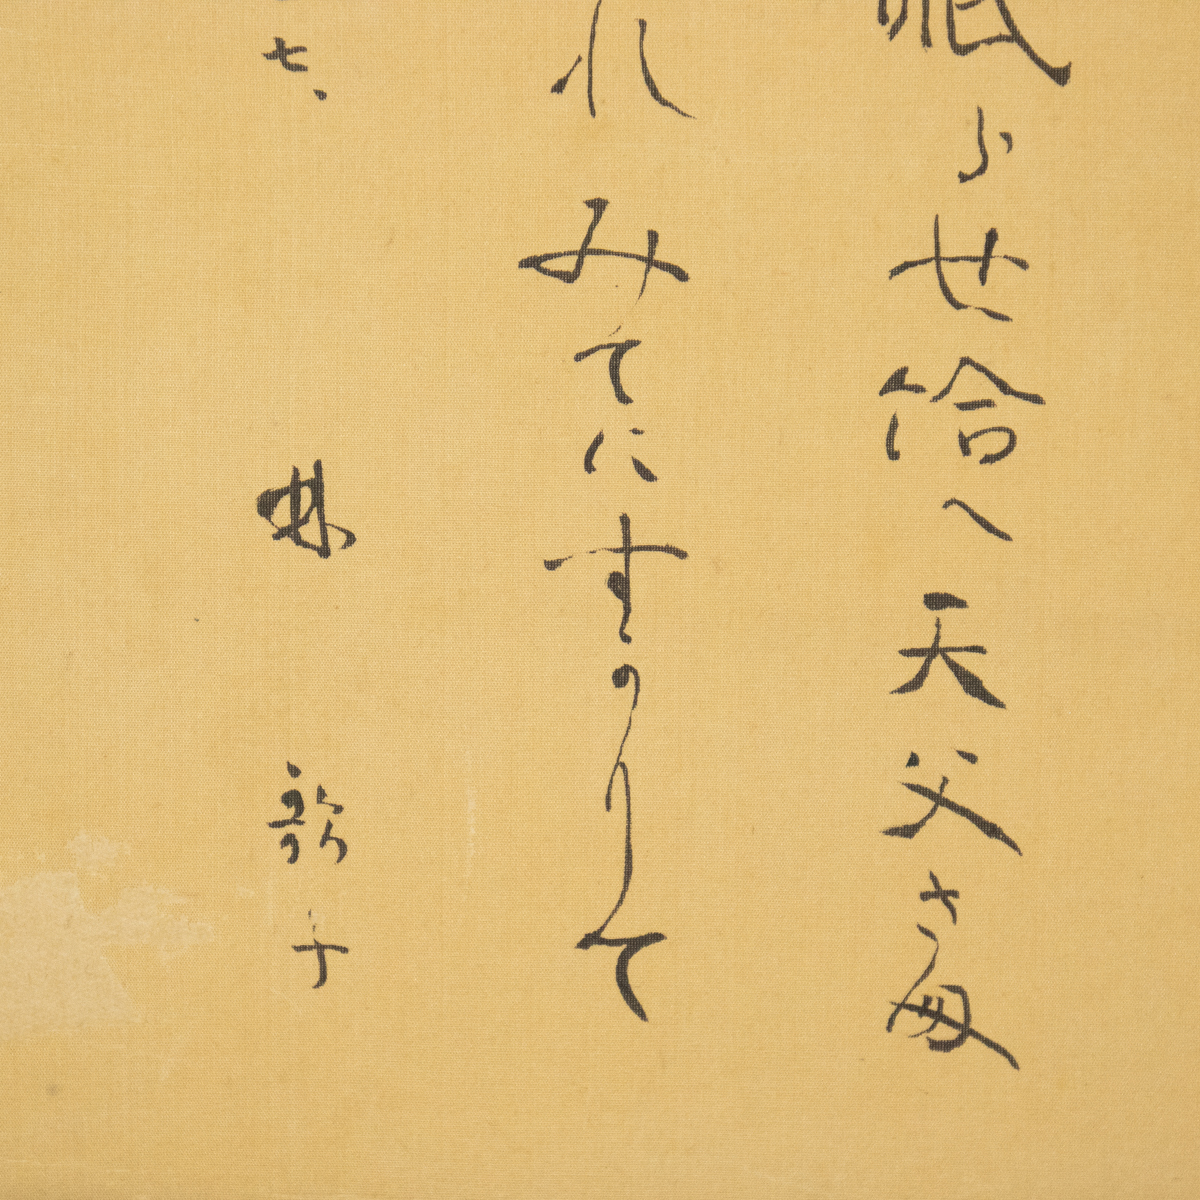 眠らせ給へ天父さ
れみてにすかりて
七、林歌子